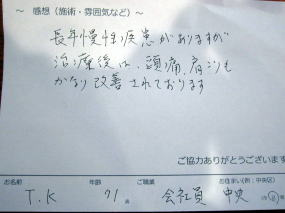 ～ 感想（施術・雰囲気など） ～
長年慢性疾患がありますが
治療後は、頭痛、肩こりも
かなり改善されております
ご協力ありがとうございます
お名前 年齢 ご職業 お住まい(例：中央区)
T.K 71歳 会社員 中央